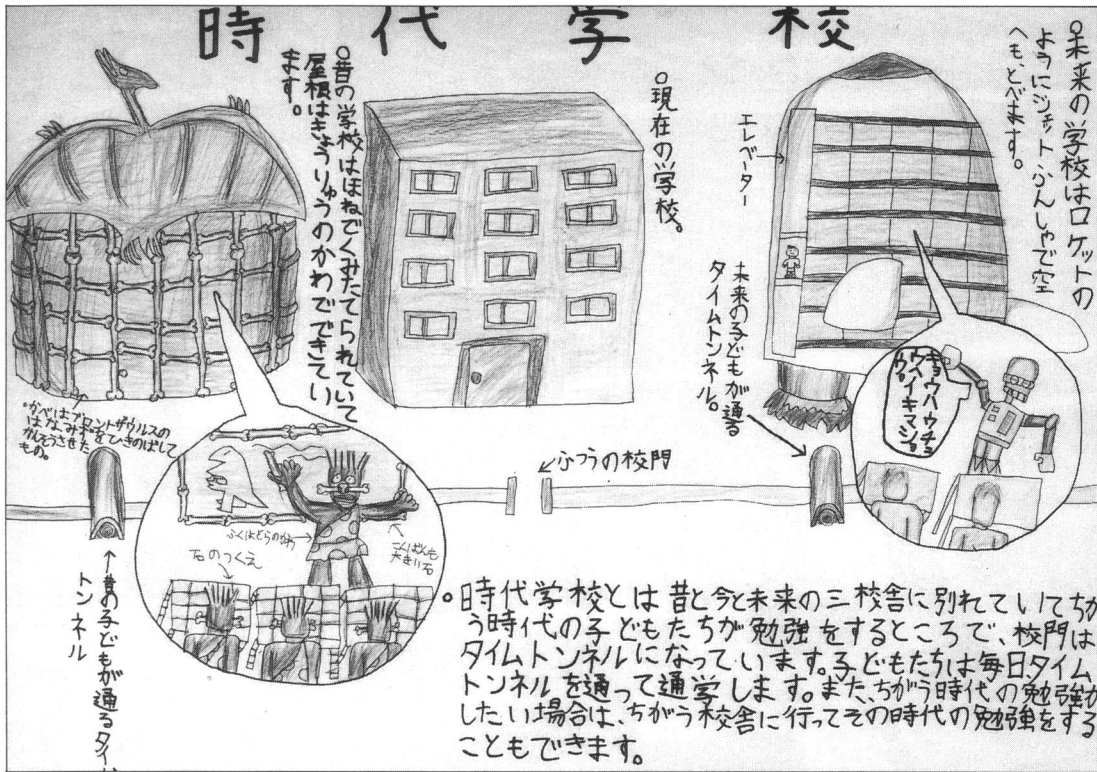 時代学校
○未来の学校はロケットの
ようにジェットふんしゃで空
へも、とべます。
エレベーター
○現在の学校。
○昔の学校はほねでくみたてられていて
屋根はきょうりゅうのかわでできてい
ます。
未来の子どもが通る
タイムトンネル。
キョウハウチュ
ウヘイキマショ
ウ。
○かべはブロントザウルスの
はなみずをひきのばして
かんそうさせた
もの。
ふつうの校門
ふくはとらのかわ
こくばんも
大きい石
石のつくえ
昔の子どもが通るタイム
トンネル
○時代学校とは昔と今と未来の三校舎に別れていてちが
う時代の子どもたちが勉強をするところで、校門は
タイムトンネルになっています。子どもたちは毎日タイム
トンネルを通って通学します。また、ちがう時代の勉強が
したい場合は、ちがう校舎に行ってその時代の勉強をする
こともできます。